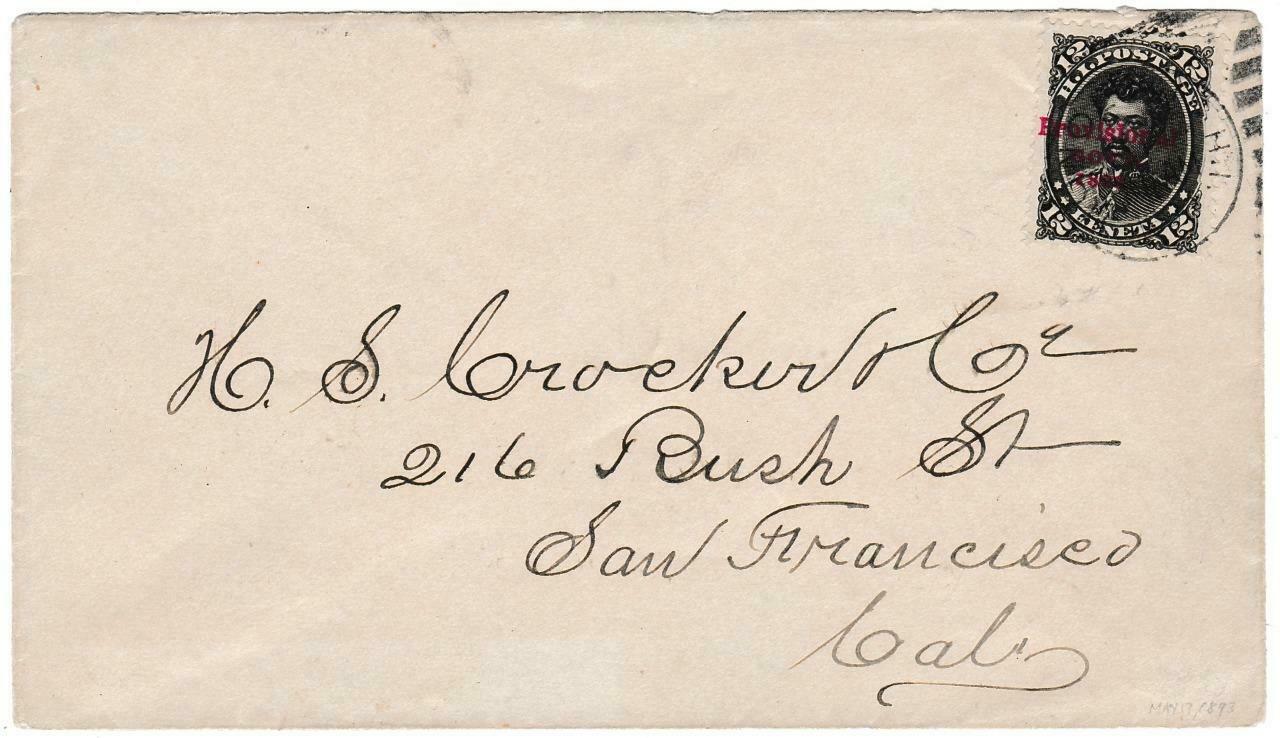 12 12
H.I. POSTAGE
Provisional
GOVT.
1893
LENETA
12 12
H.I.
H. S. Crocker & Co
216 Bush St
San Francisco
Cal.
MAY 17, 1893